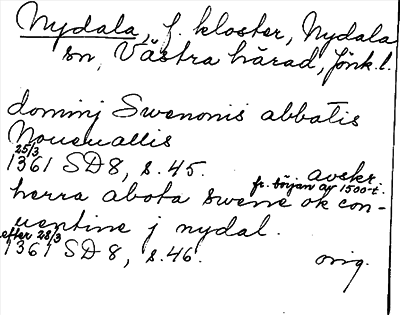 Nydala, f. kloster, Nydala
sn, Västra härad, Jönk.l.
dominj Swenonis abbatis
Noueuallis
25/3
1361 SD 8, s. 45. avskr.
fr. början av 1500-t.
herra abota swene ok con-
uentine j nydal.
efter 28/3
1361 SD 8, s. 46. orig.